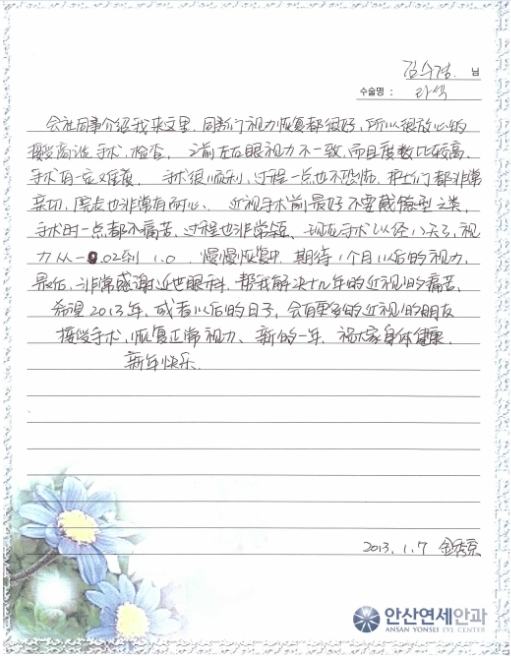 김수경 님
수술명 : 라식
会社同事介绍我来这里. 同事们视力恢复都很好, 所以很放心的
接受商谈, 手术, 检查. 之前左右眼视力不一致, 而且度数比较高.
手术有一定难度. 手术很顺利, 过程一点也不恐怖. 护士们都非常
亲切, 院长也非常有耐心. 近视手术前最好不要戴隐型之类,
手术时一点都不痛苦, 过程也非常短. 现在手术以经 天了, 视
力从 0.02到1.0. 慢慢恢复中, 期待1个月以后的视力.
最后, 非常感谢延世眼科. 帮我解决十几年的近视的痛苦.
希望2013年, 或者以后的日子, 会有更多的近视的朋友
接受手术, 恢复正常视力. 新的一年 祝大家身体健康.
新年快乐.
2013. 1. 7 金秀京
안산연세안과
ANSAN YONSEI EYE CENTER